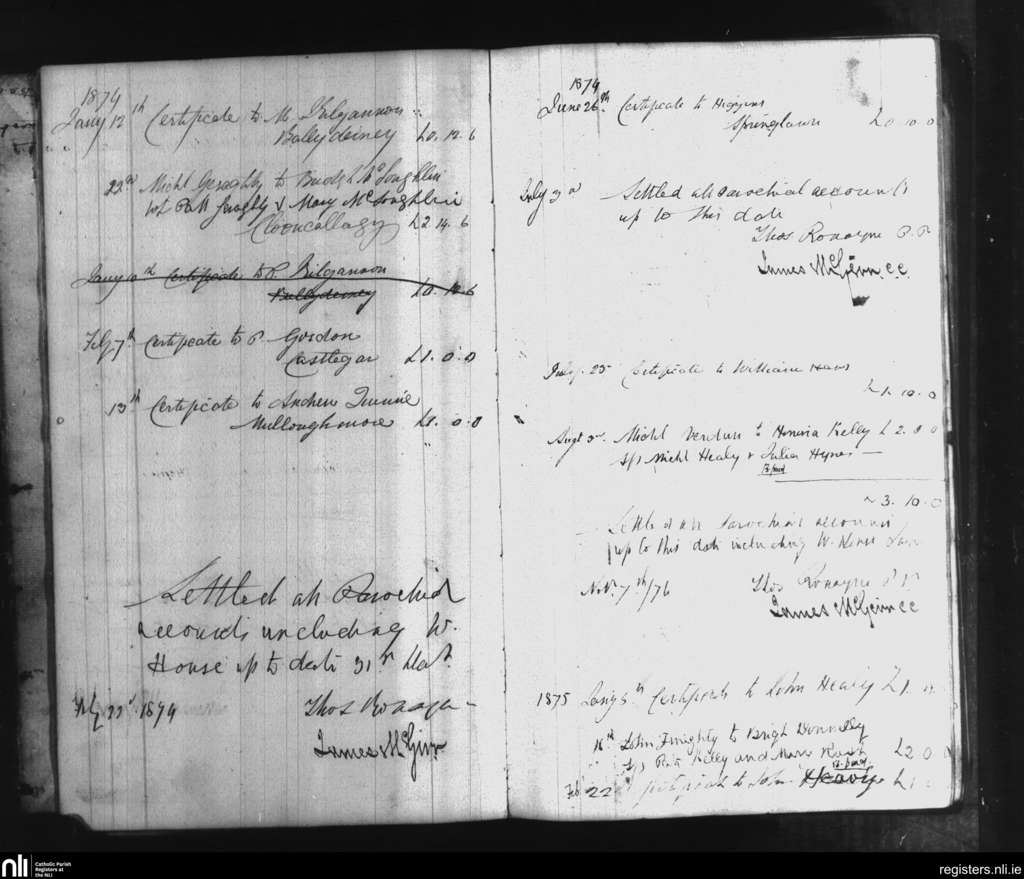 1874
Jany 12th Certificate to M. Kilgannon
Ballyderney £0. 12. 6
22nd Michl Geraghty to Bridgt McLoughlin
wt Patt Geraghty & Mary McLoughlin
Clooncallagy £2 14. 6
Jany 10th Certificate to P. Kilgannon
Ballyderney £0. 12 6
Feby 7th Certificate to P. Gordon
Castlegar £1. 0. 0
13th Certificate to Andrew Quinne
Mulloughmore £1. 0. 0
Settled all Parochial
accounts including W.
House up to date 31st
Feby 22d 1874 Thos Ronayn
James McGinn
1874
June 26th Certificate to Higgins
Springlawn £0. 10. 0
July 3d Settled all Parochial accounts
up to this date
Thos Ronayne P. P
James McGinn C.C
July 25 Certificate to William
£1. 10. 0
Augt 3d Michl to Honoria Kelly £2. 0 0
sps Michl Healy & Julia Hynes —
3. 10. 0
Settled all Parochial accounts
up to this date including W. House
Novr 7th/76 Thos Ronayne P. P
James McGinn CC
1875 Jany 5th Certificate to John Healy £1.
16th John to Bright Donnelly
sps Kelly and Mary £2 0 0
Feb 22 Certificate to John Heavy £1
nli Catholic Parish
Registers at
the NLI
registers.nli.ie